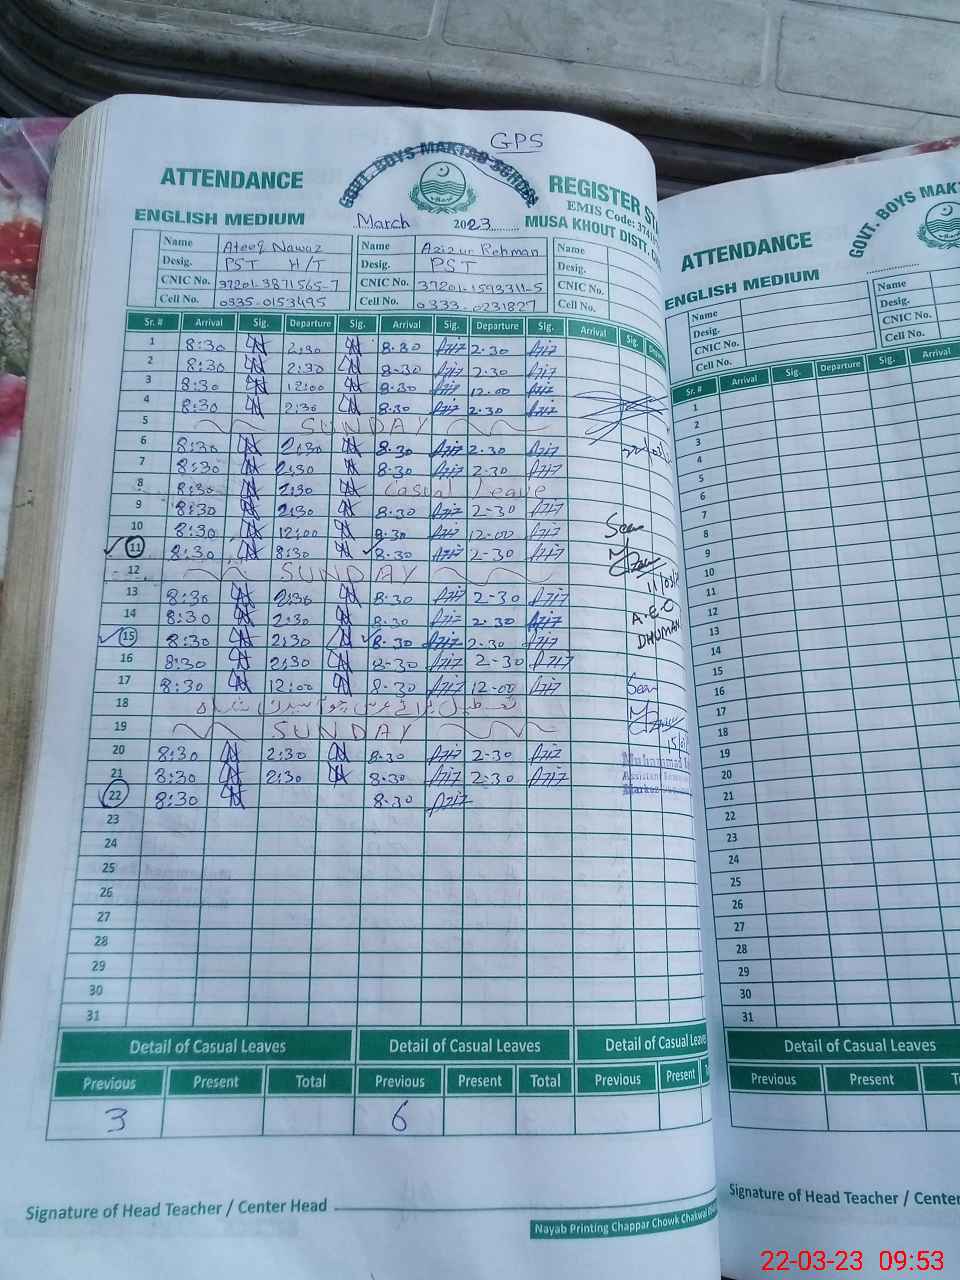 GPS
GOVT. BOYS MAKTAB SCHOOL
ATTENDANCE REGISTER
EMIS Code:
ENGLISH MEDIUM March 2023 MUSA KHOUT DISTT.
Name Ateeq Nawaz Name Aziz ur Rehman Name
Desig. PST H/T Desig. PST Desig.
CNIC No. 37201-3871565-7 CNIC No. 37201-1593311-5 CNIC No.
Cell No. 0335-0153495 Cell No. 0333-0231827 Cell No.
Sr. # Arrival Sig. Departure Sig. Arrival Sig. Departure Sig. Arrival Sig.
1 8:30 2:30 8-30 Aziz 2-30 Aziz
2 8:30 2:30 8-30 Aziz 2-30 Aziz
3 8:30 12:00 8-30 Aziz 12-00 Aziz
4 8:30 2:30 8-30 Aziz 2-30 Aziz
5 SUNDAY
6 8:30 2:30 8-30 Aziz 2-30 Aziz
7 8:30 2:30 8-30 Aziz 2-30 Aziz
8 8:30 2:30 Casual Leave
9 8:30 2:30 8-30 Aziz 2-30 Aziz
10 8:30 12:00 8-30 Aziz 12-00 Aziz
11 8:30 8:30 8-30 Aziz 2-30 Aziz
12 SUNDAY
13 8:30 2:30 8-30 Aziz 2-30 Aziz
14 8:30 2:30 8-30 Aziz 2-30 Aziz
15 8:30 2:30 8-30 Aziz 2-30 Aziz
16 8:30 2:30 8-30 Aziz 2-30 Aziz
17 8:30 12:00 8-30 Aziz 12-00 Aziz
18
19 SUNDAY
20 8:30 2:30 8-30 Aziz 2-30 Aziz
21 8:30 2:30 8-30 Aziz 2-30 Aziz
22 8:30 8-30 Aziz
23
24
25
26
27
28
29
30
31
Seen
A.E.O
Seen
Muhammad
Detail of Casual Leaves Detail of Casual Leaves Detail of Casual
Previous Present Total Previous Present Total Previous Present
3 6
Signature of Head Teacher / Center Head
Nayab Printing Chappar Chowk Chakwal
GOVT. BOYS
ATTENDANCE
ENGLISH MEDIUM
Name Name
Desig. Desig.
CNIC No. CNIC No.
Cell No. Cell No.
Sr. # Arrival Sig. Departure Sig. Arrival
1
2
3
4
5
6
7
8
9
10
11
12
13
14
15
16
17
18
19
20
21
22
23
24
25
26
27
28
29
30
31
Detail of Casual Leaves
Previous Present
Signature of Head Teacher / Center
22-03-23 09:53